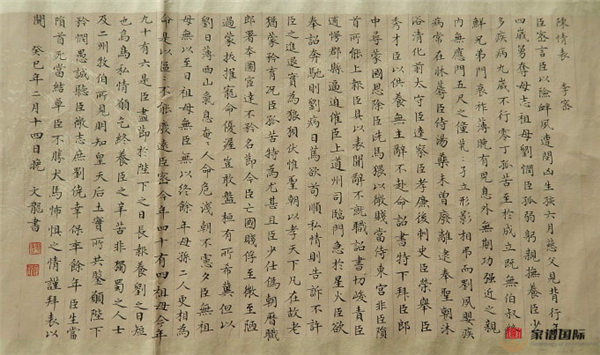 陳情表 李密
臣密言臣以險釁夙遭閔凶生孩六月慈父見背行年
四歲舅奪母志祖母劉憫臣孤弱躬親撫養臣少
多疾病九歲不行零丁孤苦至於成立既無伯叔終
鮮兄弟門衰祚薄晚有兒息外無期功强近之親
內無應門五尺之僮煢々孑立形影相弔而劉夙嬰疾
病常在牀蓐臣侍湯藥未曾廢離逮奉聖朝沐
浴清化前太守臣逵察臣孝廉後刺史臣榮舉臣
秀才臣以供養無主辭不赴命詔書特下拜臣郎
中尋蒙國恩除臣洗馬猥以微賤當侍東宮非臣隕
首所能上報臣具以表聞辭不就職詔書切峻責臣
逋慢郡縣逼迫催臣上道州司臨門急於星火臣欲
奉詔奔馳則劉病日篤欲苟順私情則告訴不許
臣之進退實為狼狽伏惟聖朝以孝天下凡在故老
猶蒙矜育況臣孤苦特為尤甚且臣少仕偽朝歷職
郎署本圖宦達不矜名節今臣亡國賤俘至微至陋
過蒙拔擢寵命優渥豈敢盤桓有所希冀但以
劉日薄西山氣息奄々人命危淺朝不慮夕臣無祖
母無以至日祖母無臣無以終餘年母孫二人更相為
命是以區々不能廢遠臣密今年四十有四祖母今年
九十有六是臣盡節於陛下之日長報養劉之日短
也烏鳥私情願乞終養臣之辛苦非獨蜀之人士
及二州牧伯所見明知皇天后土實所共鑒願陛下
矜憫愚誠聽臣微志庶劉僥幸保卒餘年臣生當
隕首死當結草臣不勝犬馬怖懼之情謹拜表以
聞 癸巳年二月十四日晚 文龍書
家谱国际